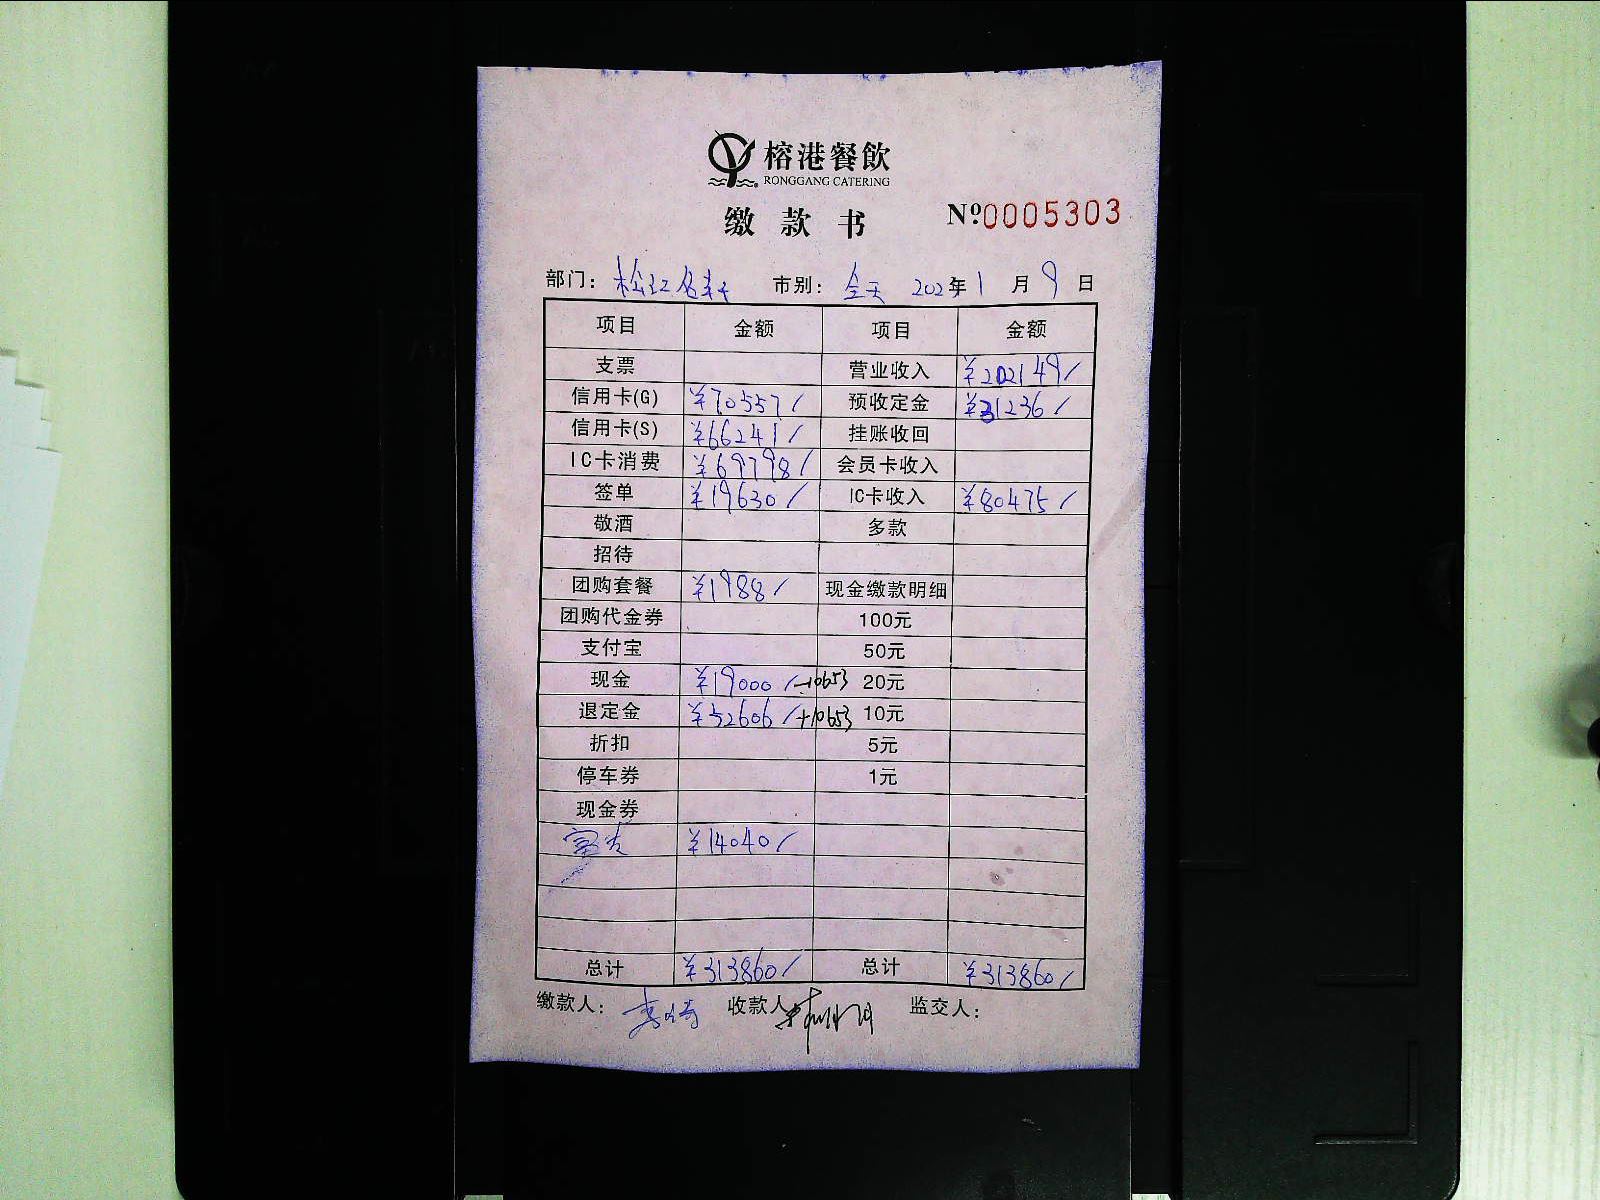 榕港餐飲
RONGGANG CATERING
缴款书 Nº0005303
部门: 松江名轩 市别: 全天 2021年1月9日
项目 金额 项目 金额
支票 营业收入 ¥202149/
信用卡(G) ¥70557/ 预收定金 ¥31236/
信用卡(S) ¥66241/ 挂账收回
IC卡消费 ¥69798/ 会员卡收入
签单 ¥19630/ IC卡收入 ¥80475/
敬酒 多款
招待
团购套餐 ¥1988/ 现金缴款明细
团购代金券 100元
支付宝 50元
现金 ¥19000/ -10653 20元
退定金 ¥52606/ +10653 10元
折扣 5元
停车券 1元
现金券
¥14040/
总计 ¥313860/ 总计 ¥313860/
缴款人: 李琦 收款人 监交人: